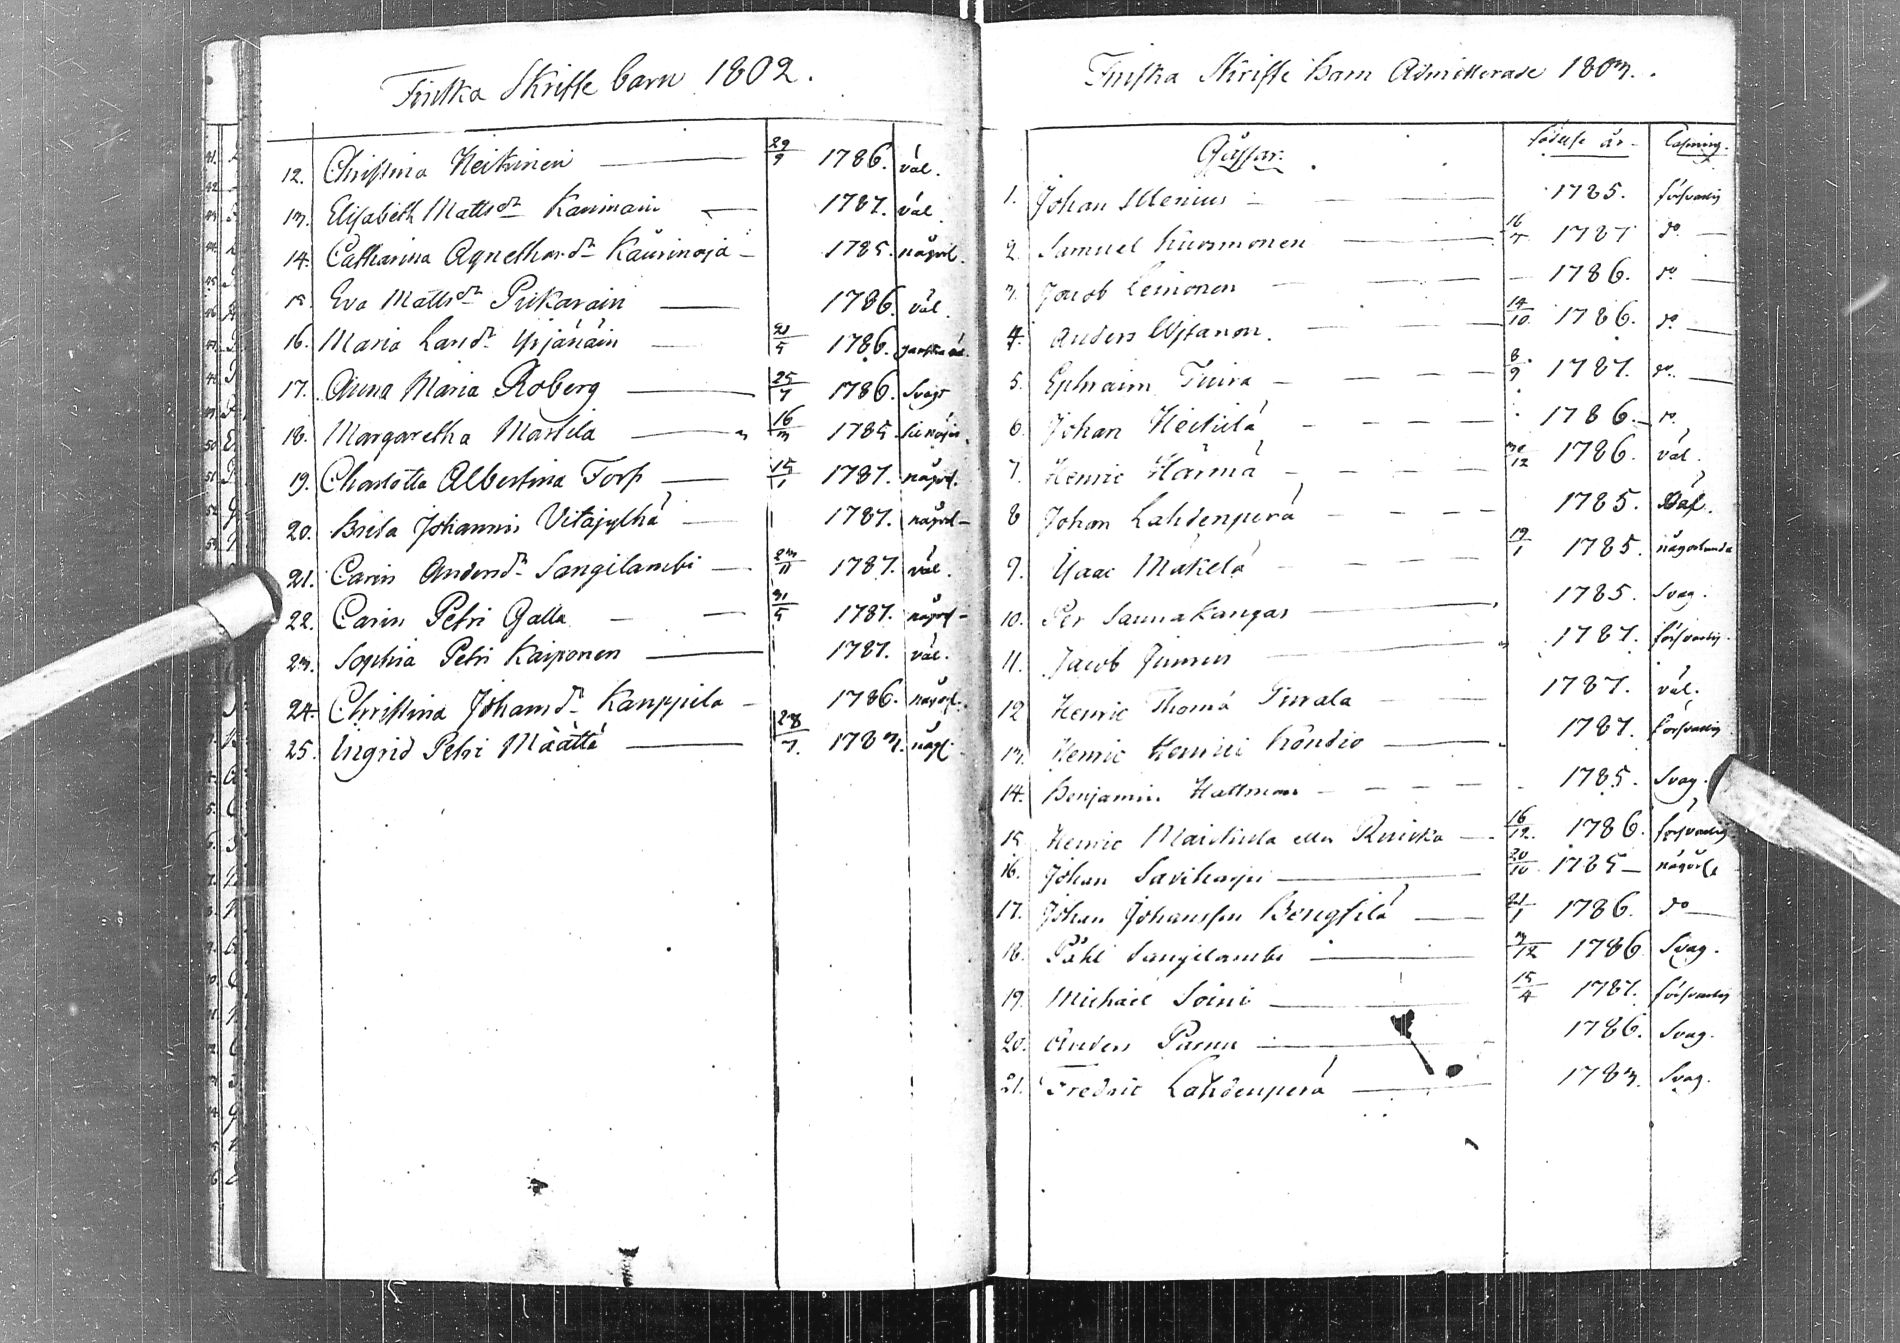 Finska Skrifte barn 1802.
12. Christina Heikinen 29/9 1786. väl.
13. Elisabeth Matts dr Kauniain 1787. väl.
14. Catharina Agnethas dr Kaurinoja 1785. någorl.
15. Eva Matts dr Pirkarain 1786. väl.
16. Maria Lars dr Yrjänäin 1786.
17. Anna Maria Roberg 25/7 1786. svagt
18. Margaretha Martila 16/3 1785
19. Charlotta Albertina Forss 15/1 1787. någorl.
20. Brita Johannis Vitajylhä 1787. någorl
21. Carin Anders dr Sangilambi 23/11 1787. väl.
22. Carin Petri Galla 31/5 1787. någorl
23. Sophia Petri Kaiponen 1787. väl.
24. Christina Johans dr Kauppila 1786. någorl.
25. Ingrid Petri Määttä 28/7. 1783. någl.
Finska Skrifte barn Admitterade 1803.
Gåssar. födelse år Läsning.
1. Johan Ullenius 1785. försvarlig
2. Samuel Kuosmonen 16/7 1787 do
3. Jacob Leinonen 1786. do
4. Anders Ujtanon. 14/10 1786. do
5. Ephraim Tuira 8/9 1787. do
6. Johan Heikilä 1786. do
7. Henric Härmä 30/12 1786. väl.
8 Johan Lahdenperä 1785. Väl.
9. Isaac Mäkelä 19/1 1785. någorlunda
10. Per Saunakangas 1785. Svag.
11. Jacob Junnus 1787. försvarlig.
12 Henric Thomä Turala 1787. väl.
13. Henric Henrici Köndiö 1787. försvarlig
14. Benjamin Hallman 1785. Svag.
15 Henric eller 16/12. 1786. försvarlig
16. Johan Saviharju 20/10 1785 någorl.
17. Johan Johansson Bengtilä 21/1 1786. do
18. Påhl Sangilambi 3/12 1786 Svag.
19. Michael Soini 15/4 1787. försvarlig
20. Anders Pamu 1786. Svag.
21. Fredric Lahdenperä 1783. Svag.